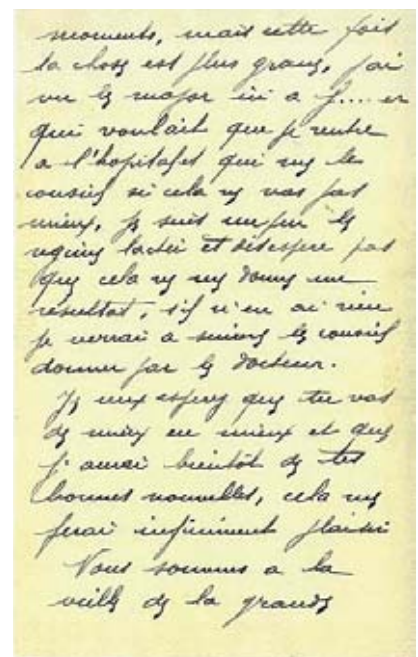 moments, mais cette fois
la chose est plus grave, j'ai
vu le major ici a J.... er
qui voulait que je rentre
a l'hopital et qui me le
conseil si cela ne vas pas
mieux, je suit un peu le
regime lactei et desespere pas
que cela ne me donne un
resultat, s'il n'en ai rien
je verrai a suivre le conseil
donner par le docteur.
Je veux espere que tu vas
de mieux en mieux et que
j'aurai bientôt de tes
bonnes nouvelles, cela me
ferai infiniment plaisir
Nous sommes a la
veille de la grande